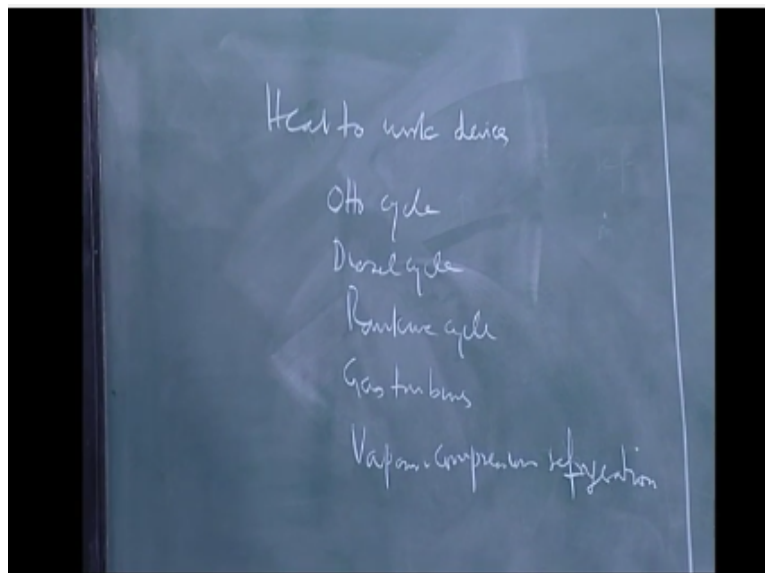 Heat to work devices
Otto cycle
Diesel cycle
Rankine cycle
Gas turbines
Vapour compression refrigeration